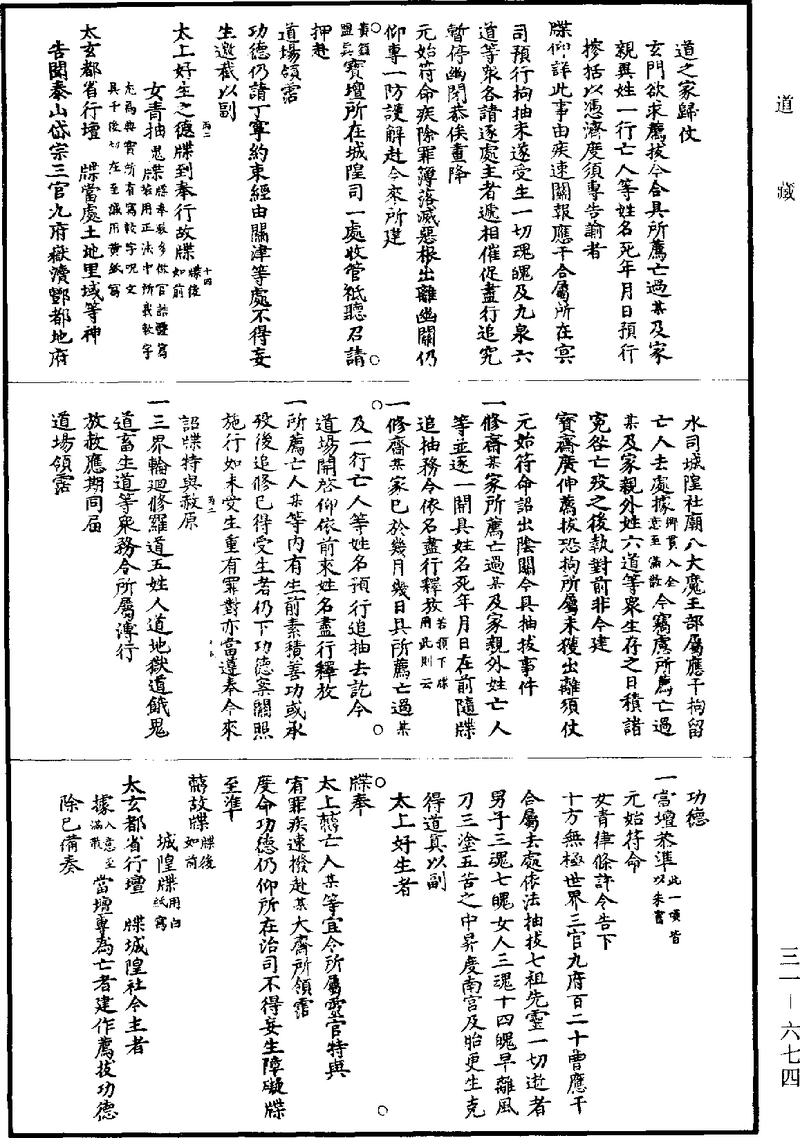 道藏
三一－六七四
道之家歸仗
玄門欲求薦拔今合具所薦亡過某及家
親異姓一行亡人等姓名死年月日預行
摉括以憑濟度須專告諭者
牒仰詳此事由疾速關報應干合屬所在冥
司預行拘抽未遂受生一切魂魄及九泉六
道等衆各請逐處主者遞相催促盡行追究
暫停幽閉恭俟畫降
元始符命疾除罪簿落滅惡根出離幽關仍
仰專一防護解赴今來所建
○
寶壇所在城隍司一處收管祗聽召請
○
押赴
道場領霑
功德仍請丁寧約束經由關津等處不得妄
生邀截以副
太上好生之德牒到奉行故牒牒後如前
丙二
十四
女青抽鬼牒
太玄都省行壇　牒當處土地里域等神
告聞泰山岱宗三官九府嶽瀆酆都地府
水司城隍社廟八大魔王部屬應干拘留
亡人去處據鄉貫入全意至滿散今竊慮所薦亡過
某及家親外姓六道等衆生存之日積諸
冤咎亡歿之後執對前非今建
寶齋廣伸薦拔恐拘所屬未獲出離須仗
元始符命詔出陰關今具抽拔事件
一修齋某家所薦亡過某及家親外姓亡人
等並逐一開具姓名死年月日在前隨牒
追抽務令依名盡行釋放若預下牒用此則云
○
○
一修齋某家已於幾月幾日具所薦亡過某
及一行亡人等姓名預行追抽去訖今
道場開啓仰依前來姓名盡行釋放
一所薦亡人某等内有生前素積善功或承
歿後追修已得受生者仍下功德案關照
施行如未受生重有罪對亦當遵奉今來
丙二
詔牒特與赦原
一三界輪廻修羅道五姓人道地獄道餓鬼
道畜生道等衆務合所屬溥行
放赦應期同屆
道場領霑
功德
一當壇恭準此一項皆以朱書
元始符命
女青律條許令告下
十方無極世界三官九府百二十曹應干
合屬去處依法抽拔七祖先靈一切逝者
男子三魂七魄女人三魂十四魄早離風
刀三塗五苦之中昇度南宫及胎更生克
得道真以副
太上好生者
○
○
牒奉
太上爇亡人某等宜令所屬靈官特與
宥罪疾速撥赴某大齋所領霑
度命功德仍仰所在治司不得妄生障礙牒
至準
爇故牒牒後如前
城隍牒用白紙寫
太玄都省行壇　牒城隍社令主者
據入意至滿散當壇專為亡者建作薦拔功德
除已備奏